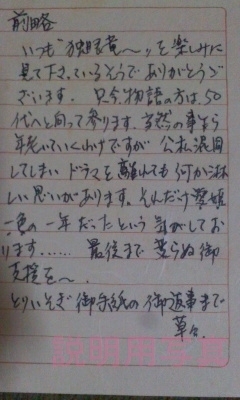 前略
いつも"独眼竜〜"を楽しみに
見て下さっているそうでありがとうご
ざいます。只今物語の方は、50
代へと向って参ります。当然の事なら
年老いていくわけですが 公私混同
してしまい ドラマを離れても何か淋
しい思いがあります。それだけ愛姫
一色の一年だったという気がしてお
ります…… 最後まで変らぬ御
支援を〜.
とりいそぎ御手紙の御返事まで
草々
説明用写真